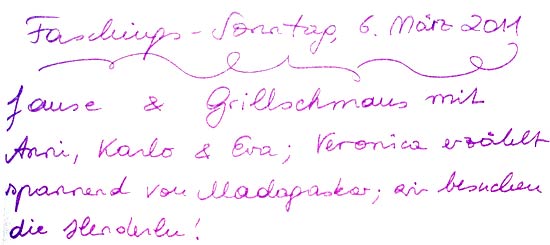 Faschings-Sonntag, 6. März 2011
Jause & Grillschmaus mit
Anni, Karlo & Eva; Veronica erzählt
spannend von Madagaskar; wir besuchen
die Henderln!